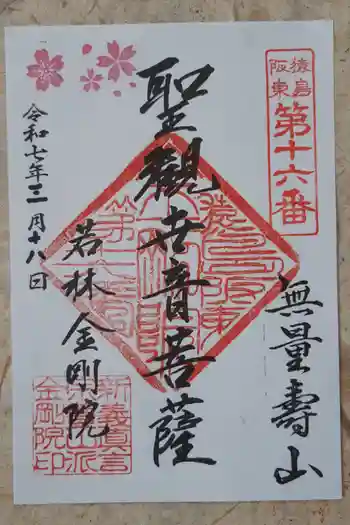 猿島
阪東
第十六番
無量壽山
聖觀世音菩薩
若林金剛院
令和七年三月十八日
新義真言
金剛院印